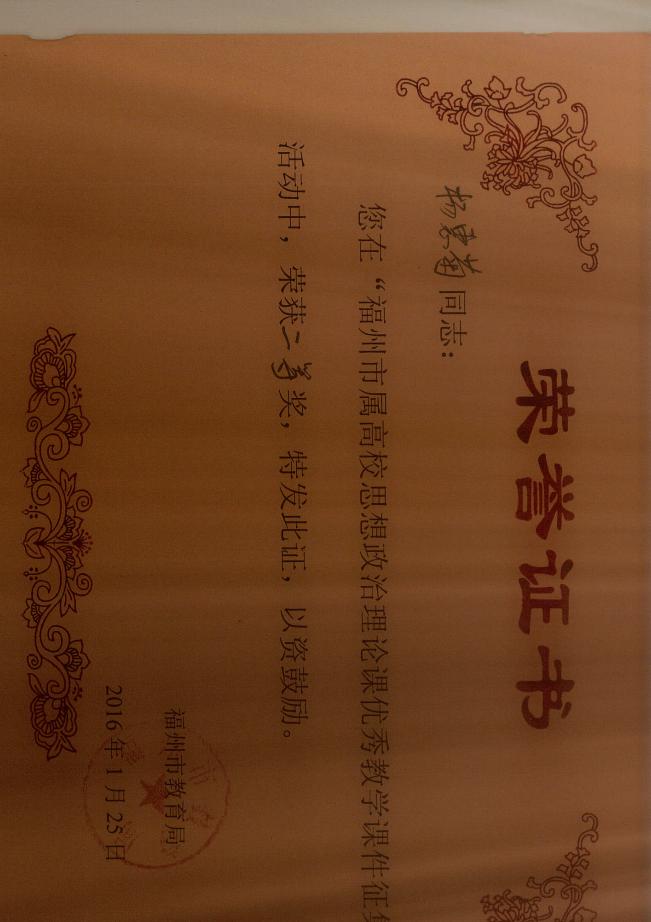 荣誉证书
杨惠菊同志：
您在“福州市属高校思想政治理论课优秀教学课件征集
活动中，荣获二等奖，特发此证，以资鼓励。
福州市教育局
2016年1月25日